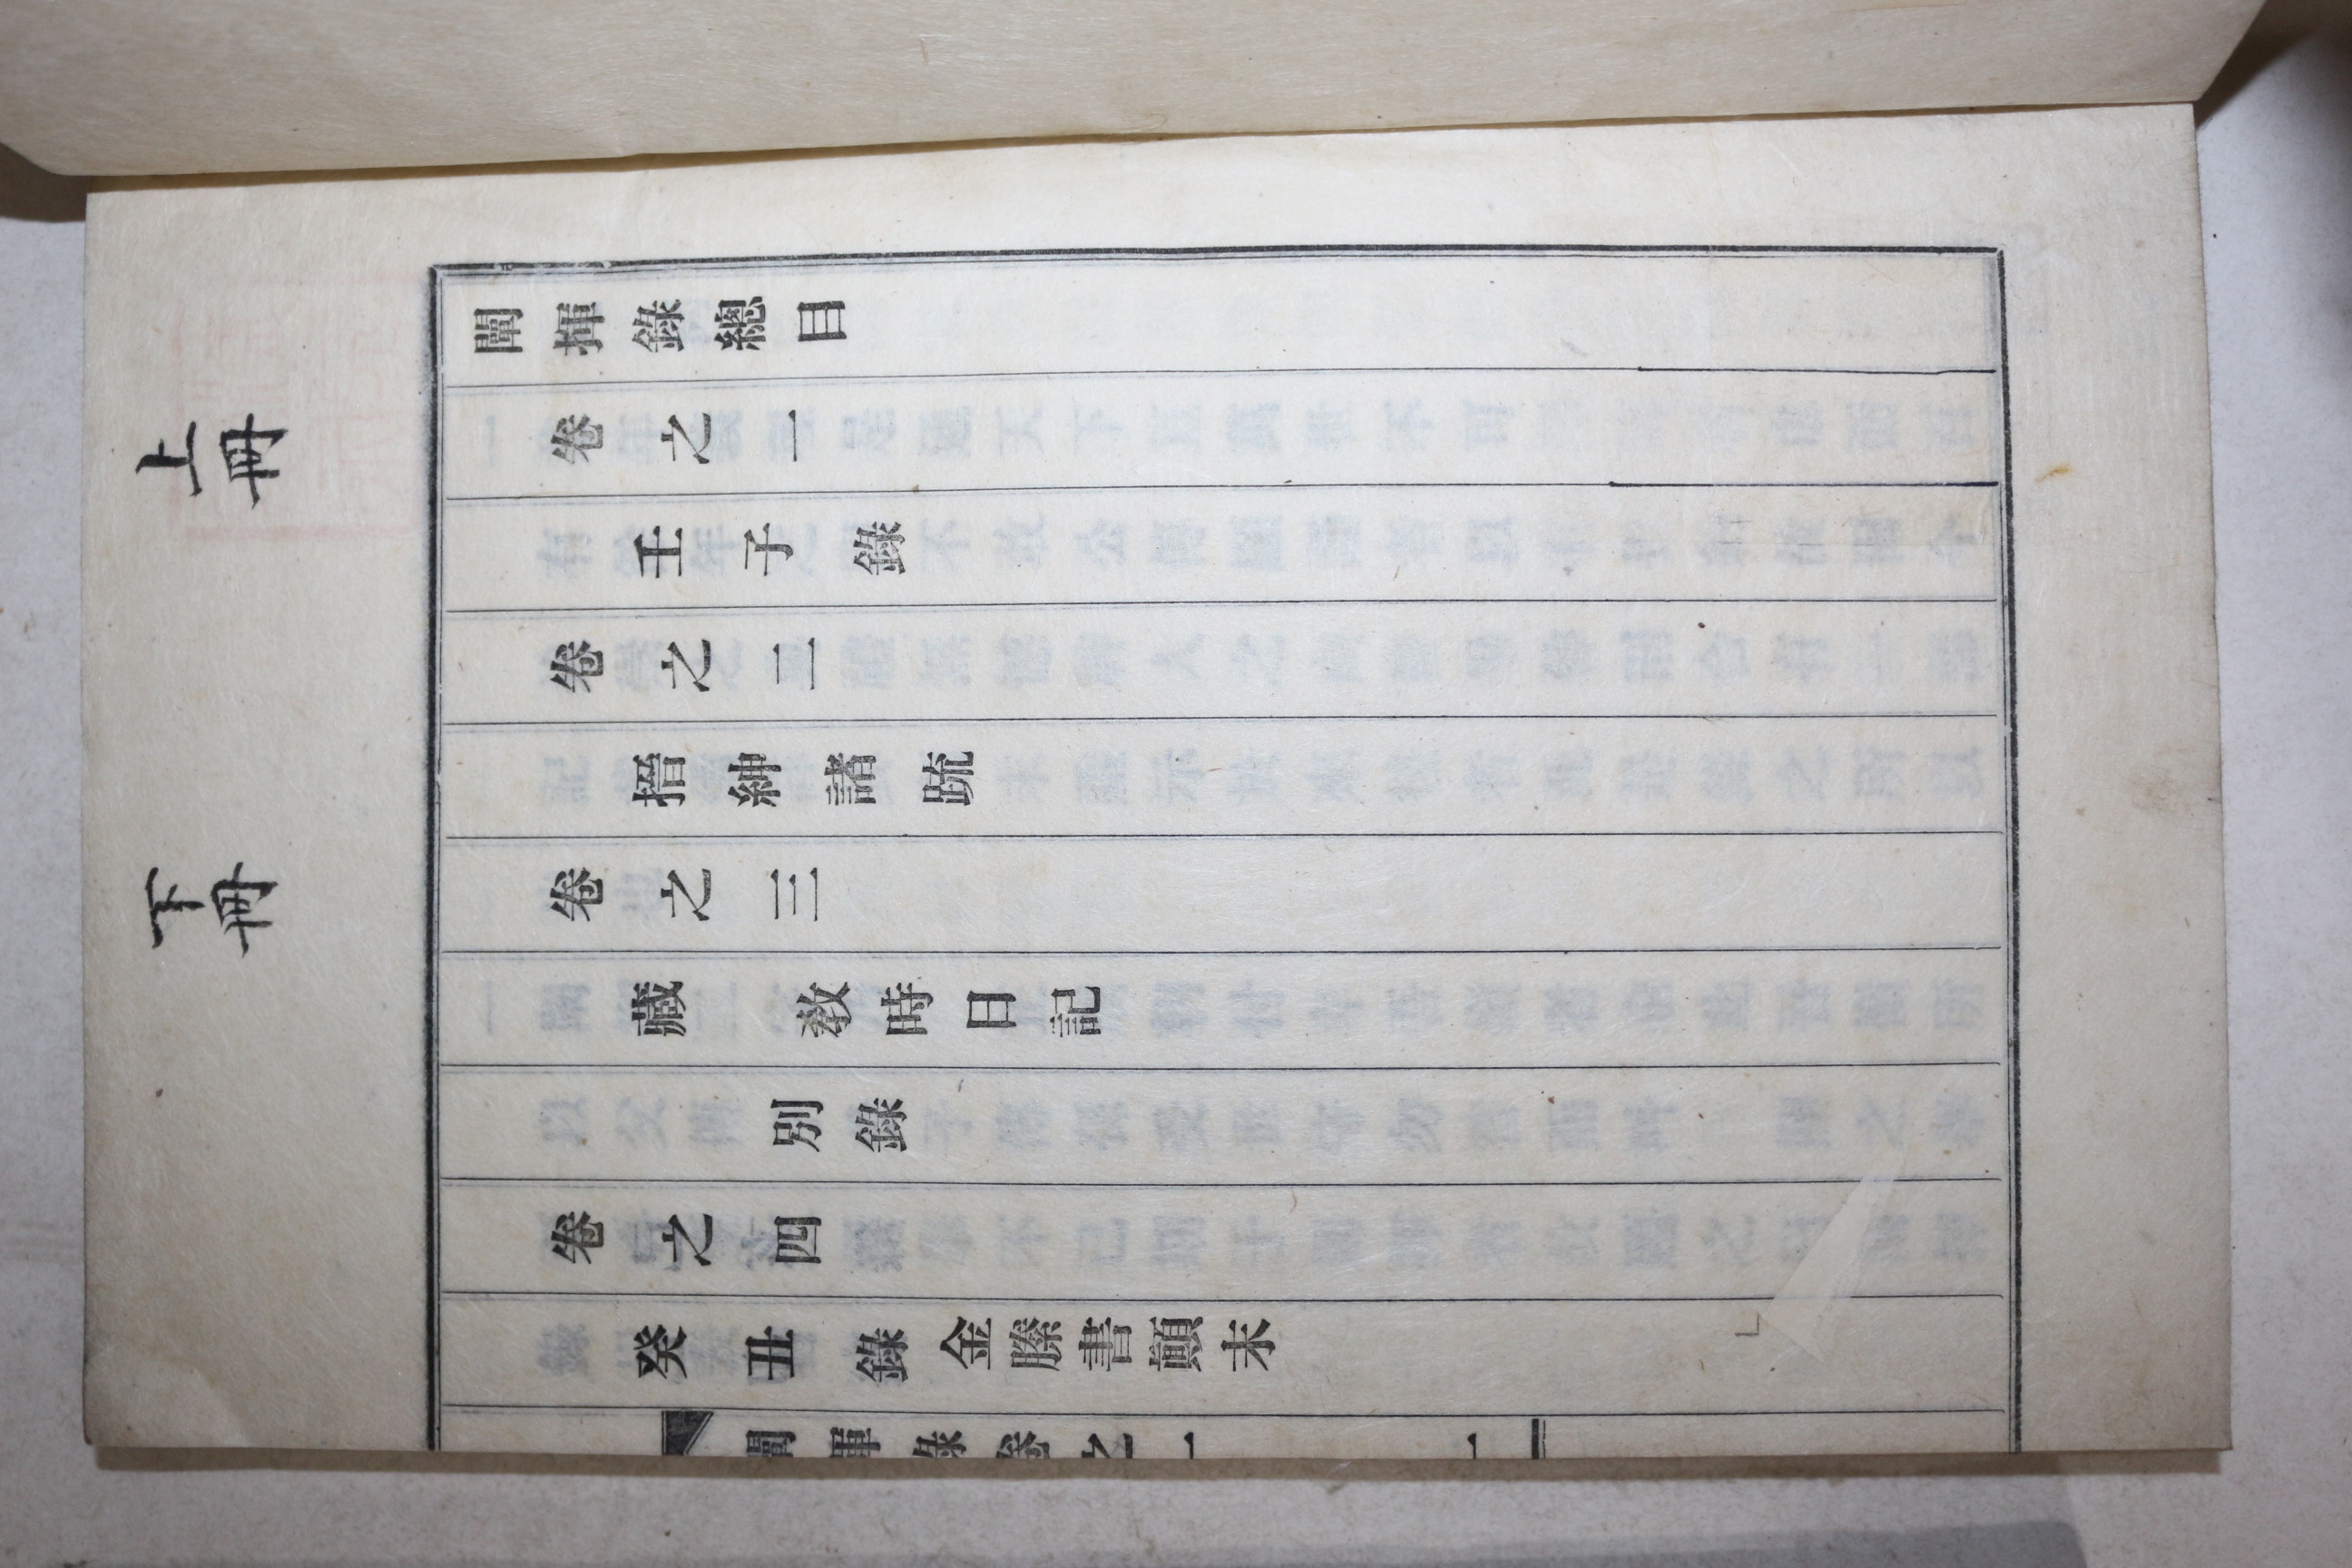 上冊
下冊
闡揮錄總目
卷之一
壬子錄
卷之二
搢紳諸䟽
卷之三
藏 敎時日記
別錄
卷之四
癸丑錄金縢書顚末
闡揮錄卷之一 一